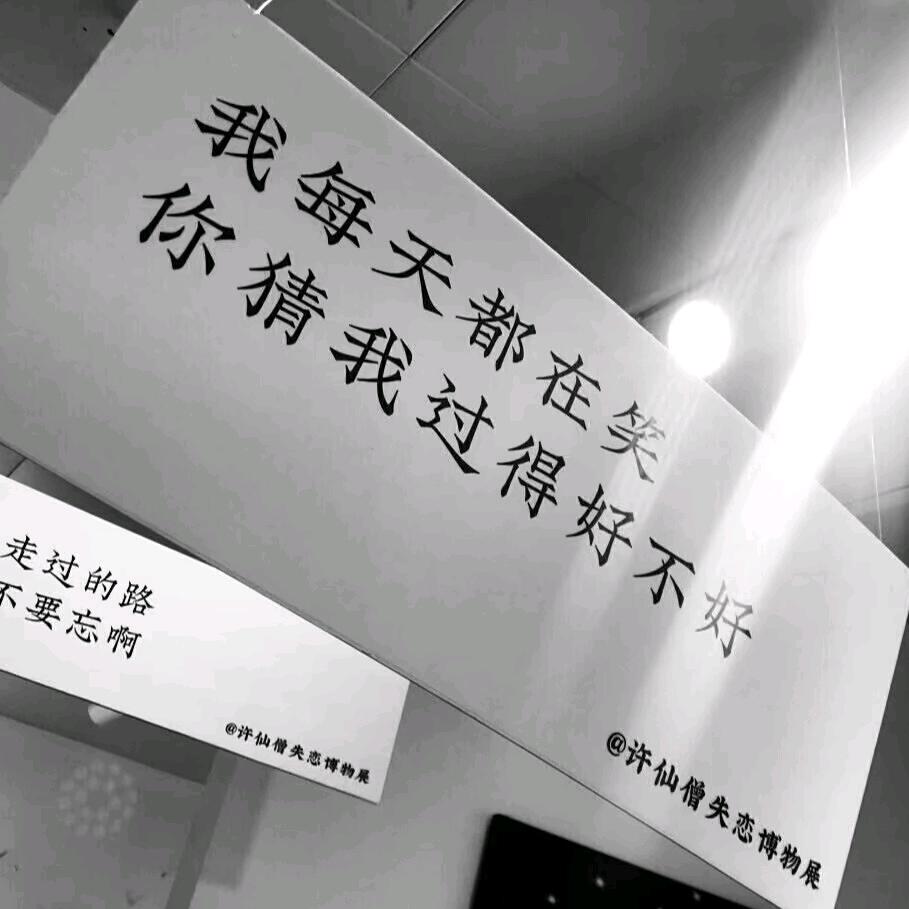 我每天都在笑
你猜我过得好不好
@许仙僧失恋博物展
走过的路
不要忘啊
@许仙僧失恋博物展